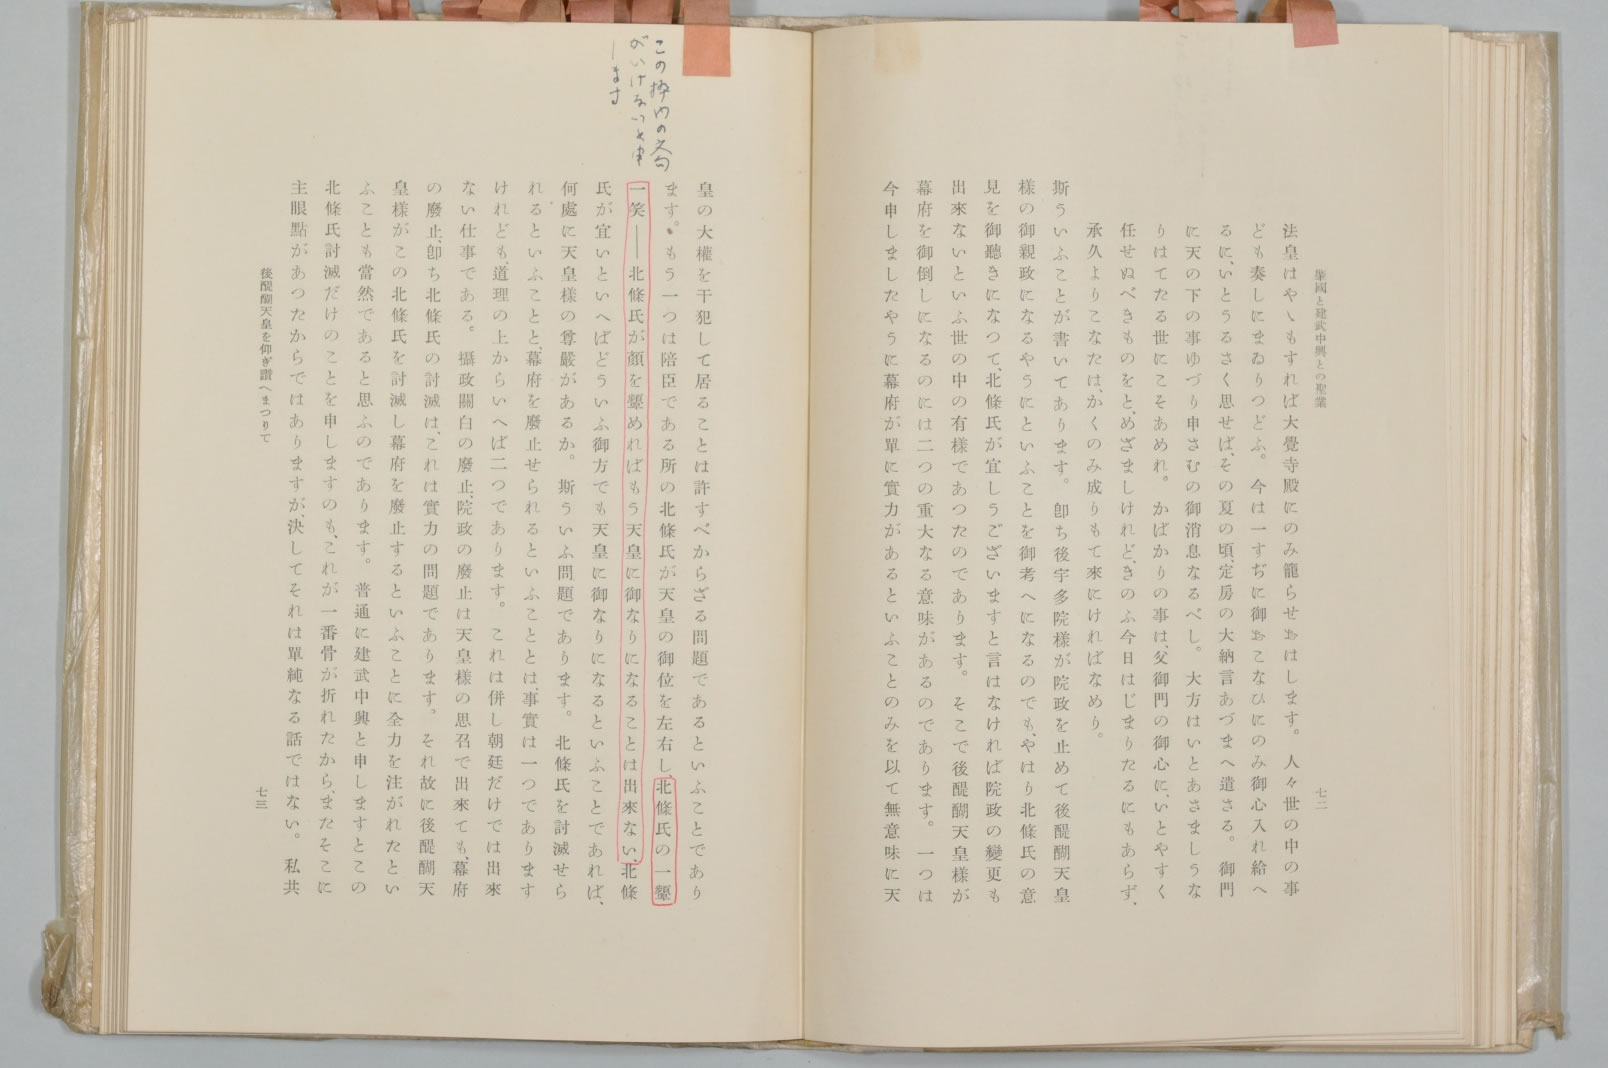 肇國と建武中興との聖業
七二
法皇はやゝもすれば大覺寺殿にのみ籠らせおはします。人々世の中の事
ども奏しにまゐりつどふ。今は一すぢに御おこなひにのみ御心入れ給へ
るに、いとうるさく思せば、その夏の頃、定房の大納言あづまへ遣さる。御門
に天の下の事ゆづり申さむの御消息なるべし。大方はいとあさましうな
りはてたる世にこそあめれ。かばかりの事は、父御門の御心に、いとやすく
任せぬべきものをと、めざましけれど、きのふ今日はじまりたるにもあらず、
承久よりこなたは、かくのみ成りもて來にければなめり。
斯ういふことが書いてあります。卽ち後宇多院樣が院政を止めて後醍醐天皇
樣の御親政になるやうにといふことを御考へになるのでも、やはり北條氏の意
見を御聽きになつて、北條氏が宜しうございますと言はなければ院政の變更も
出來ないといふ世の中の有樣であつたのであります。そこで後醍醐天皇樣が
幕府を御倒しになるのには二つの重大なる意味があるのであります。一つは
今申しましたやうに幕府が單に實力があるといふことのみを以て無意味に天
この枠内の文句
がいけないと申
します
皇の大權を干犯して居ることは許すべからざる問題であるといふことであり
ます。もう一つは陪臣である所の北條氏が天皇の御位を左右し、北條氏の一顰
一笑――北條氏が顏を顰めればもう天皇に御なりになることは出來ない、北條
氏が宜いといへばどういふ御方でも天皇に御なりになるといふことであれば、
何處に天皇樣の尊嚴があるか。斯ういふ問題であります。北條氏を討滅せら
れるといふことと、幕府を廢止せられるといふこととは、事實は一つであります
けれども、道理の上からいへば二つであります。これは併し朝廷だけでは出來
ない仕事である。攝政關白の廢止、院政の廢止は天皇樣の思召で出來ても、幕府
の廢止、卽ち北條氏の討滅は、これは實力の問題であります。それ故に後醍醐天
皇樣がこの北條氏を討滅し幕府を廢止するといふことに全力を注がれたとい
ふことも當然であると思ふのであります。普通に建武中興と申しますとこの
北條氏討滅だけのことを申しますのも、これが一番骨が折れたから、またそこに
主眼點があつたからではありますが、決してそれは單純なる話ではない。私共
後醍醐天皇を仰ぎ讚へまつりて
七三